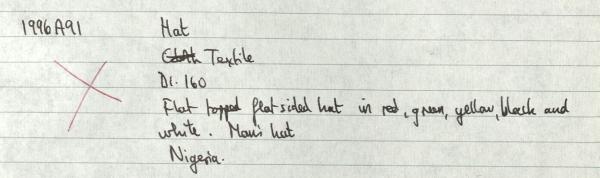 1996A91 Hat
Cloth Textile
Di. 160
Flat topped flat sided hat in red, green, yellow, black and
white. Man's hat
Nigeria.